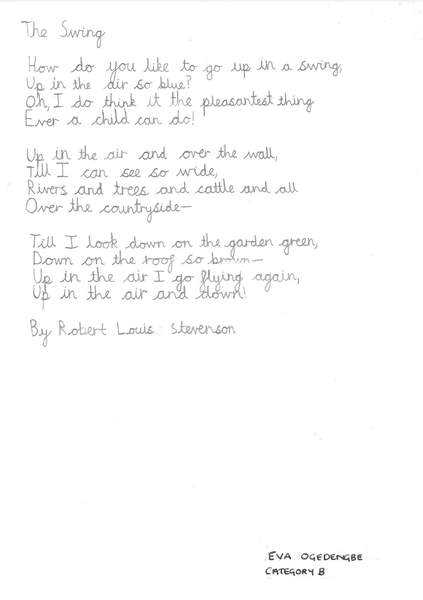 The Swing
How do you like to go up in a swing,
Up in the air so blue?
Oh, I do think it the pleasantest thing
Ever a child can do!
Up in the air and over the wall,
Till I can see so wide,
Rivers and trees and cattle and all
Over the countryside—
Till I look down on the garden green,
Down on the roof so brown—
Up in the air I go flying again,
Up in the air and down!
By Robert Louis Stevenson
EVA OGEDENGBE
CATEGORY B